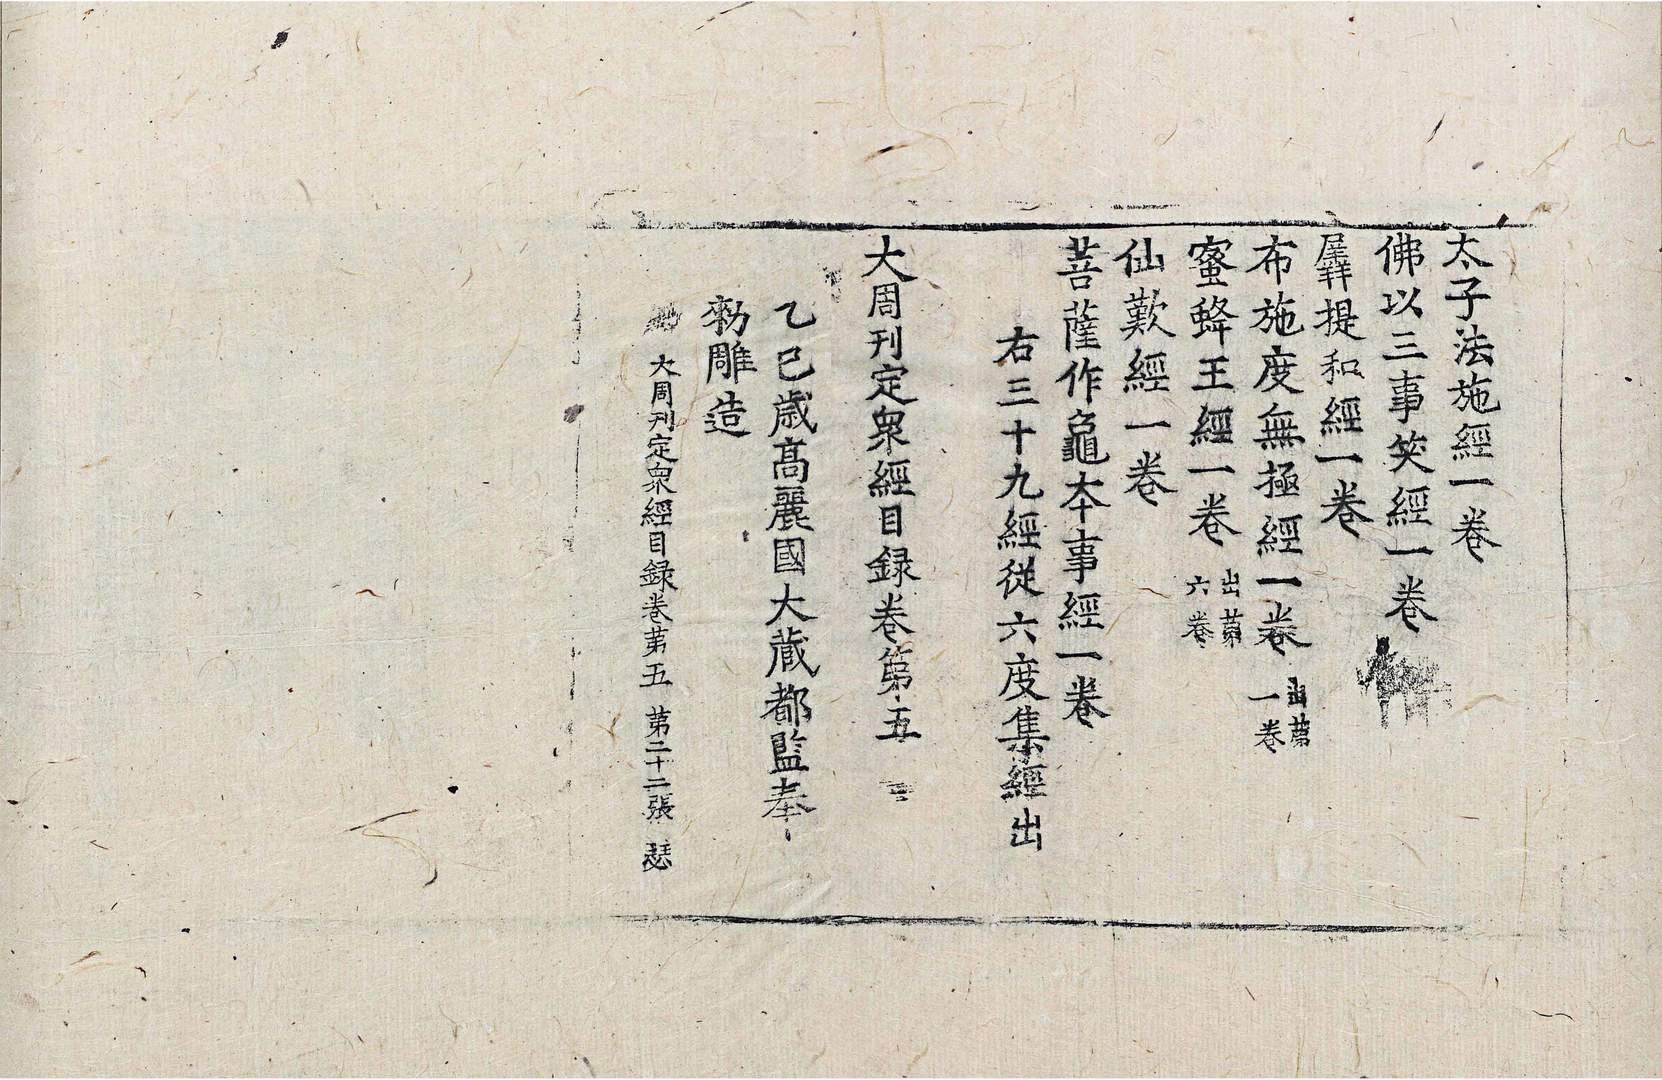 太子法施經一卷
佛以三事笑經一卷
羼提和經一卷
布施度無極經一卷 出第一卷
蜜蜂王經一卷 出第六卷
仙歎經一卷
菩薩作龜本事經一卷
右三十九經從六度集經出
大周刊定衆經目録卷第五
乙巳歳高麗國大藏都監奉
勑雕造
大周刊定衆經目録卷第五 第二十二張 瑟